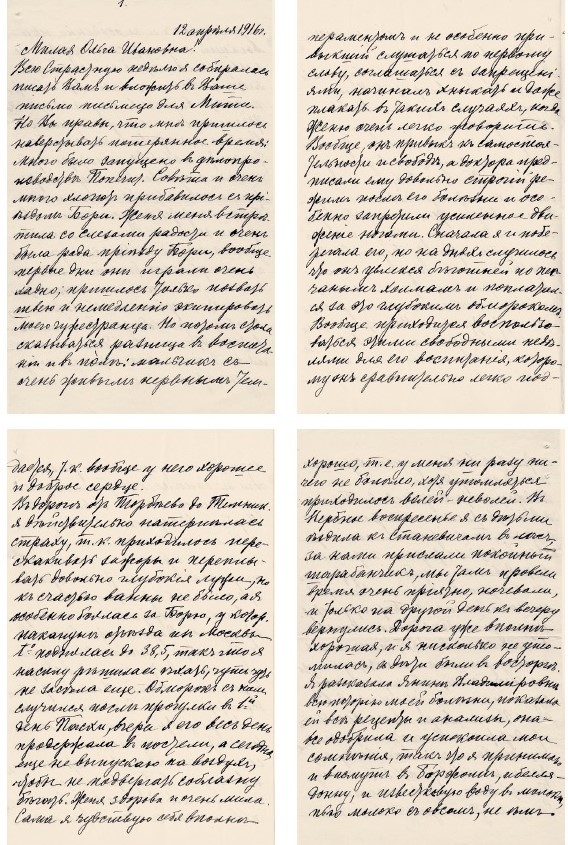 1.
12 апрѣля 1916г.
Милая Ольга Ивановна!
Всю Страстную недѣлю я собиралась
писать Вамъ и вложить въ Ваше
письмо письмецо для Мити.
Но Вы правы, что мнѣ пришлось
наверстывать потерянное время:
много было запущено въ дѣлопро-
изводствѣ Попечит. Совѣта и очень
много хлопотъ прибавилось съ прі-
ѣздомъ Бори. Женя меня встрѣ-
тила со слезами радости и очень
была рада пріѣзду Бори, вообще
первые дни они играли очень
ладно; пришлось только
и немедленно экипировать
моего Но потомъ стала
сказываться разница въ воспита-
ніи и въ полѣ: мальчикъ съ
очень живымъ нервнымъ тем-
пераментомъ и не особенно при-
выкшій слушаться по первому
слову, соглашаться съ запрещені-
ями, начиналъ хныкать и даже
плакать въ такихъ случаяхъ, когда
Женю очень легко уговорить.
Вообще, онъ привыкъ къ самостоя-
тельности и свободѣ, а доктора пред-
писали ему довольно строгій ре-
жимъ послѣ его болѣзни и осо-
бенно запретили усиленное дви-
женіе ногами. Сначала я и побе-
регала его, но на дняхъ случилось
что онъ увлекся бѣготней по пес-
чанымъ холмамъ и поплатил-
ся за это глубокимъ обморокомъ
Вообще приходится воспользо-
ваться этими свободными недѣ-
лями для его воспитанія, которо-
му онъ сравнительно легко под-
дается, т.к. вообще у него хорошее
и доброе сердце.
Въ дорогѣ отъ Торбѣево до Темник.
я дѣйствительно натерпѣлась
страху, т.к. приходилось пере-
скакивать зажоры и переплы-
вать довольно глубокія лужи, но
къ счастью ванны не было, а я
особенно боялась за Борю, у котор.
наканунѣ отъѣзда изъ Москвы
t° поднялась до 38,5, такъ что я
насилу рѣшилась ѣхать, чуть чуть
не забыла еще. Обморокъ съ нимъ
случился послѣ прогулки въ 1ый
день Пасхи, вчера я его весь день
продержала въ постели, а сегодня
еще не выпускаю на воздухъ,
чтобы не подвергать соблазну
бѣгать. Женя здорова и очень мила.
Сама я чувствую себя вполнѣ
хорошо, т.е. у меня ни разу ни-
чего не болѣло, хотя утомляться
приходилось волей-неволей. Въ
Вербное воскресенье я съ дѣтьми
ѣздила къ Станевичемъ въ лѣсъ,
за нами прислали покойный
тарабанчикъ, мы тамъ провели
время очень пріятно, ночевали,
и только на другой день къ вечеру
вернулись. Дорога уже вполнѣ
хорошая, и я нисколько не уто-
милась, а дѣти были въ восторгѣ.
Я разсказала Янинѣ Владиміровнѣ
всю исторію моей болѣзни, показала
ей всѣ рецепты и анализы, она
все одобрила и успокоила мои
сомнѣнія, такъ что я принимаю
и висмутъ въ и белла-
донну, и известковую воду въ молокѣ,
пью молоко съ овсомъ, не ѣмъ